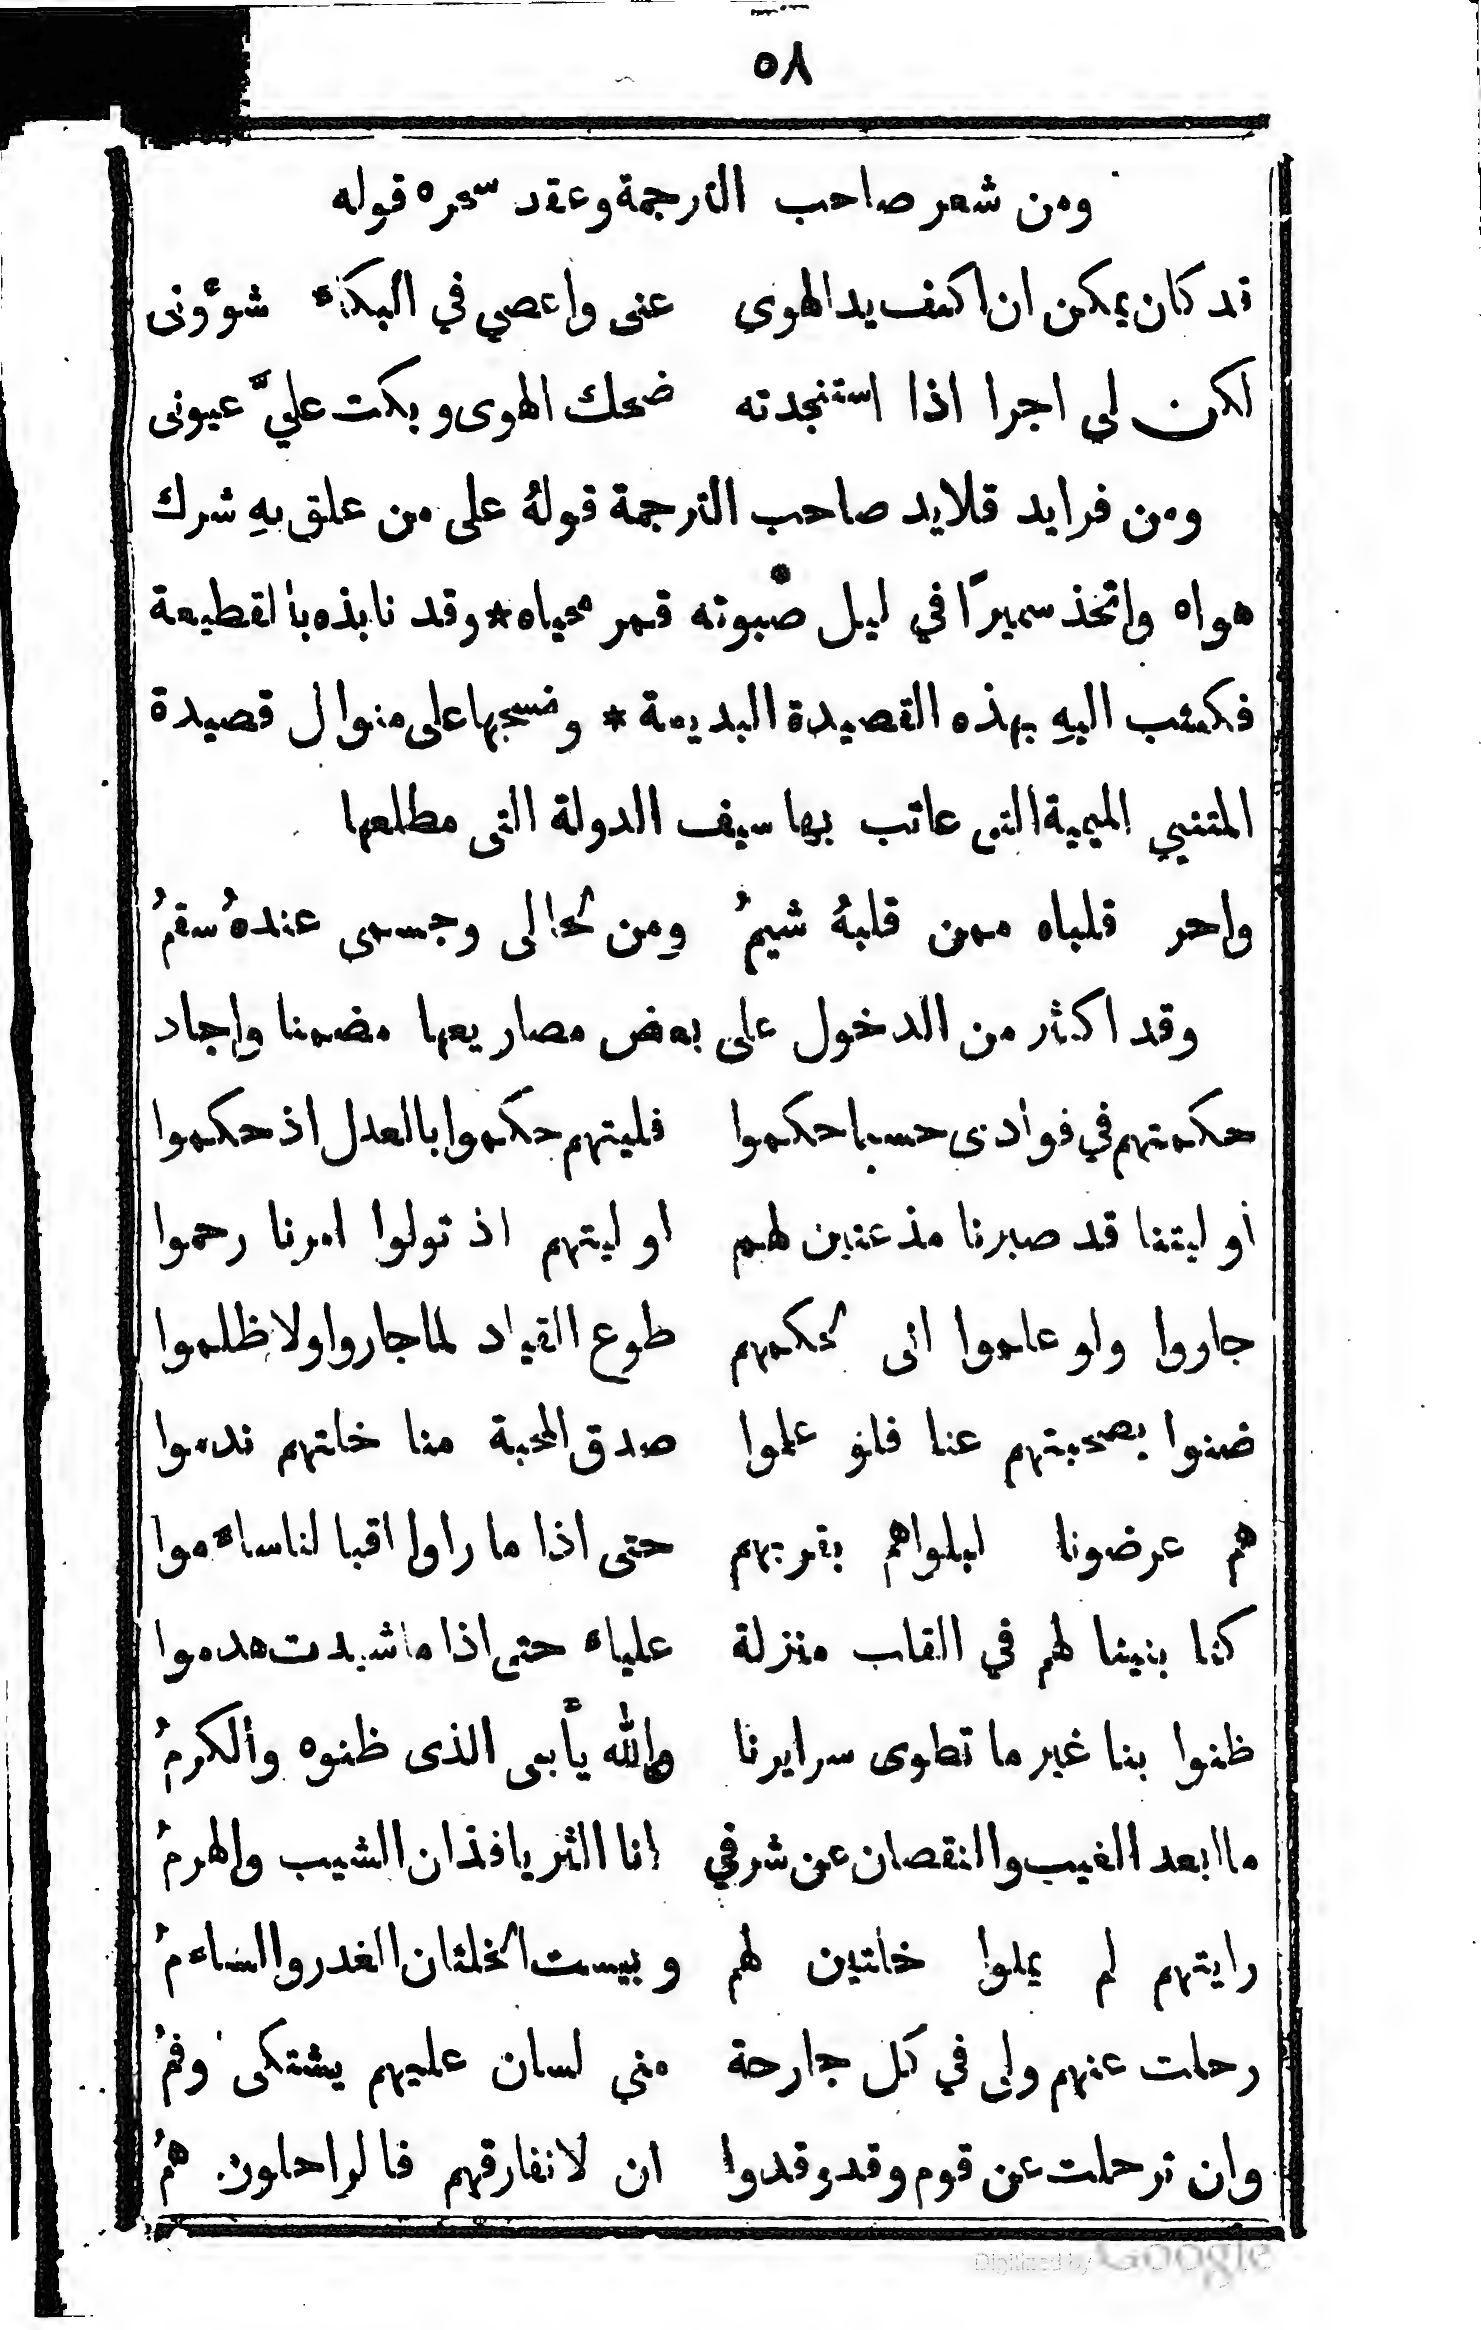 ٥٨
ومن شعر صاحب الترجمة وعقد سحره قوله
قد كان يمكن ان اكفف يد الهوى عنى واعصي في البكاء شوؤنى
لكن لى اجرا اذا استنجدته ضحك الهوى وبكت عليّ عيونى
ومن فرايد قلايد صاحب الترجمة قولهُ على من علق بهِ شرك
هواه واتخذ سميرًا في ليل صبوته قمر محياه * وقد نابذه بالقطيعة
فكتب اليهِ بهذه القصيدة البديعة * ونسجها على منوال قصيدة
المتنبي الميمية التى عاتب بها سيف الدولة التى مطلعها
واحر قلباه ممن قلبهُ شيمُ ومن بحالى وجسمى عندهُ سقمُ
وقد اكثر من الدخول على بعض مصاريعها مضمنا واجاد
حكمتهم في فوادى حسبا حكموا فليتهم حكموا بالعدل اذ حكموا
أو ليتنا قد صبرنا مذعنين لهم او ليتهم اذ تولوا امرنا رحموا
جاروا ولو علموا انى بحكمهم طوع القياد لما جاروا ولا ظلموا
ضنوا بصحبتهم عنا فلو علموا صدق المحبة منا خلتهم ندموا
هم عرضونا لبلواهم بقربهم حتى اذا ما راوا اقبالنا ساءموا
كنا بنينا لهم في القلب منزلة علياء حتى اذا ما شيدت هدموا
ظنوا بنا غير ما تطوى سرايرنا والله يأبى الذى ظنوه والكرمُ
ما ابعد الغيب والنقصان عن شرفي انا الثريا فذان الشيب والهرمُ
رايتهم لم يملوا خلتين لهم وبيست الخلتان الغدر والساءمُ
رحلت عنهم ولى في كل جارحة منى لسان عليهم يشتكى وفمُ
وان ترحلت عن قوم وقد وقدوا ان لا نفارقهم فالراحلون همُ
Digitized by Google